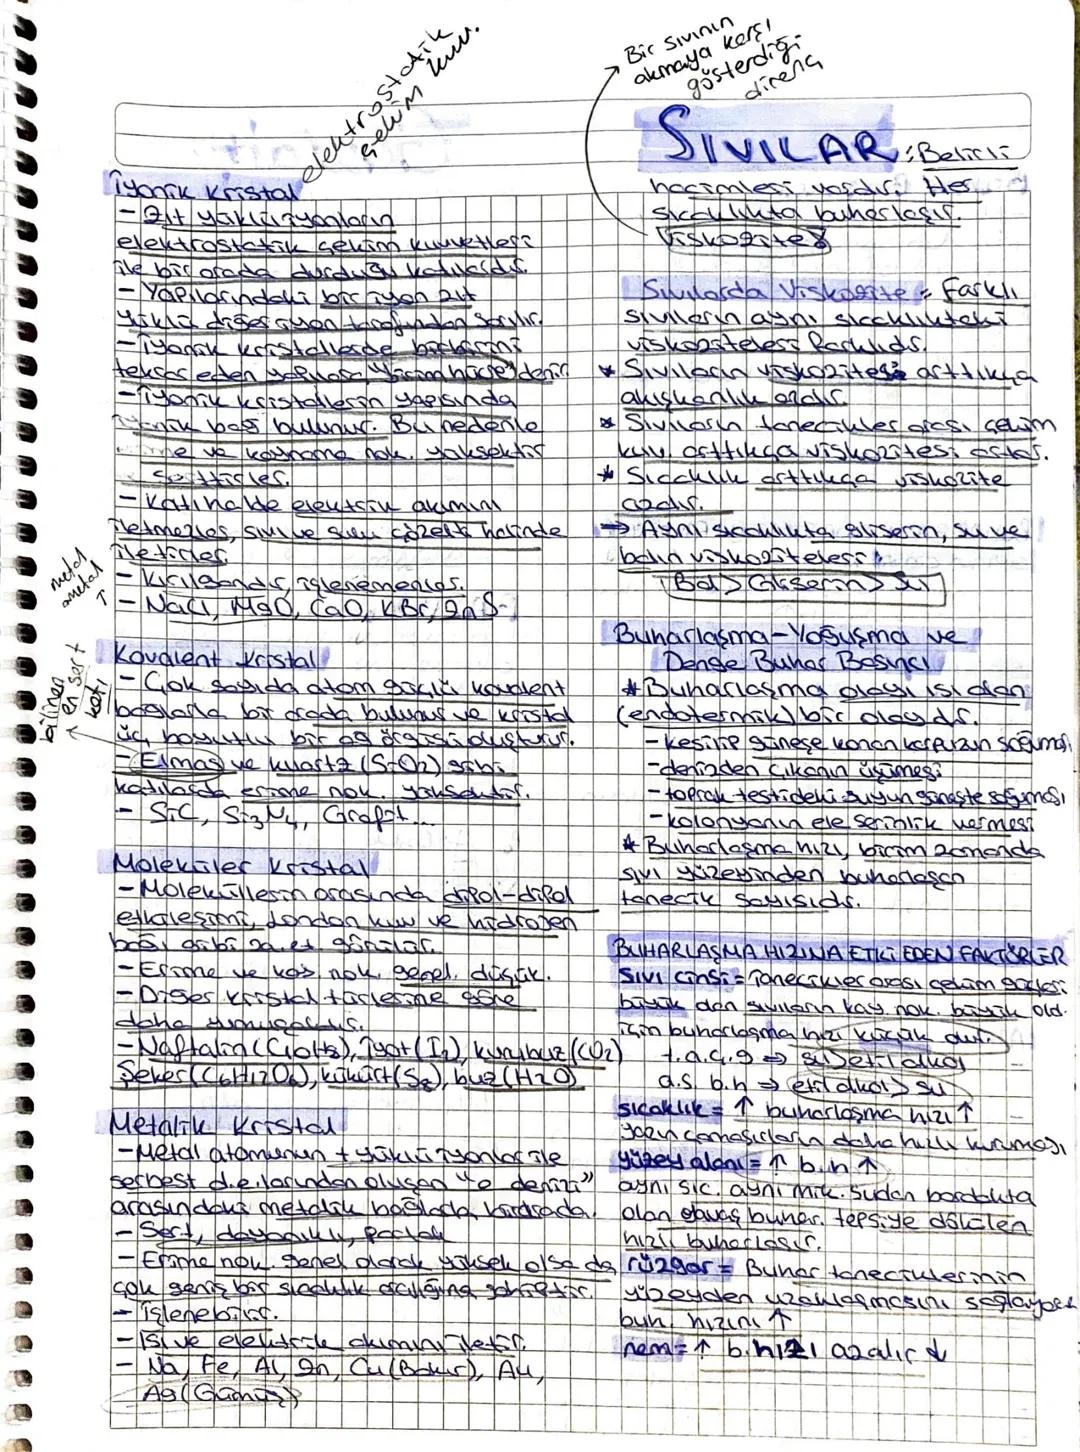 elektrostatik
çekim kuv.
İyonik Kristal
- Zıt yüklü iyonların
elektrostatik çekim kuvvetleri
ile bir arada durduğu katılardır.
- Yapılarındaki bir iyon zıt
yüklü diğer iyon tarafından sarılır.
- İyonik kristallerde birbirini
tekrar eden yapılara "birim hücre" denir
- İyonik kristallerin yapısında
iyonik bağ bulunur. Bu nedenle
erime ve kaynama nok. yüksektir
- Serttirler.
- Katı halde elektrik akımını
iletmezler, sıvı ve sulu çözelti halinde
iletirler.
- Kırılgandır, işlenemezler.
metal
ametal
- NaCl, MgO, CaO, KBr, ZnS-
Kovalent Kristal
- Çok sayıda atom güçlü kovalent
bağlarla bir arada bulunur ve kristal
üç boyutlu bir ağ örgüsü oluşturur.
bilinen
en sert
katı
- Elmas ve kuartz (SiO2) gibi
katılarda erime nok. yüksektir.
- SiC, Si3N4, Grafit...
Moleküler Kristal
- Moleküllerin arasında dipol-dipol
etkileşimi, London kuv ve hidrojen
bağı gibi za.et. görülür.
- Erime ve kay. nok. genel. düşük.
- Diğer kristal türlerine göre
daha yumuşaktır.
- Naftalin (C10H8), İyot (I2), kurubuz (CO2)
Şeker (C6H12O6), kükürt (S8), buz (H2O)
Metalik Kristal
- Metal atomunun + yüklü iyonlar ile
serbest d.e.larından oluşan "e denizi"
arasındaki metalik bağlarla bir arada.
- Sert, dayanıklı, parlak
- Erime nok. genel olarak yüksek olsa da
çok geniş bir sıcaklık aralığına sahiptir.
- İşlenebilir.
- Isı ve elektrik akımını iletir.
- Na, Fe, Al, Zn, Cu (Bakır), Au,
Ag (Gümüş)
Bir sıvının
akmaya karşı
gösterdiği
direnç
SIVILAR : Belirli
hacimleri vardır. Her
sıcaklıkta buharlaşır.
Viskozite
Sıvılarda Viskozite = Farklı
sıvıların aynı sıcaklıktaki
viskoziteleri farklıdır.
* Sıvıların viskozitesi arttıkça
akışkanlık azalır.
* Sıvıların tanecikler arası çekim
kuv. arttıkça viskozitesi artar.
* Sıcaklık arttıkça viskozite
azalır.
→ Aynı sıcaklıkta gliserin, su ve
balın viskoziteleri
Bal > Gliserin > su
Buharlaşma - Yoğuşma ve
Denge Buhar Basıncı
* Buharlaşma olayı ısı alan
(endotermik) bir olaydır.
- kesilip güneşe konan karpuzun soğuması
- denizden çıkanın üşümesi
- toprak testideki suyun güneşte soğuması
- kolonyanın ele serinlik vermesi
* Buharlaşma hızı, birim zamanda
sıvı yüzeyinden buharlaşan
tanecik sayısıdır.
BUHARLAŞMA HIZINA ETKİ EDEN FAKTÖRLER
Sıvı cinsi = Tanecikler arası çekim güçleri
büyük olan sıvıların kay. nok. büyük old.
için buharlaşma hızı küçük olur.
t.a.ç.g ⇒ su > etil alkol
a.s. b.h ⇒ etil alkol > su
sıcaklık = ↑ buharlaşma hızı ↑
yazın çamaşırların daha hızlı kuruması
yüzey alanı = ↑ b.h ↑
aynı sıc. aynı mik. sudan bardakta
olan yavaş buhar. tepsiye dökülen
hızlı buharlaşır.
rüzgar = Buhar taneciklerinin
yüzeyden uzaklaşmasını sağlayarak
buh. hızını ↑
nem = ↑ b. hızı azalır ↓